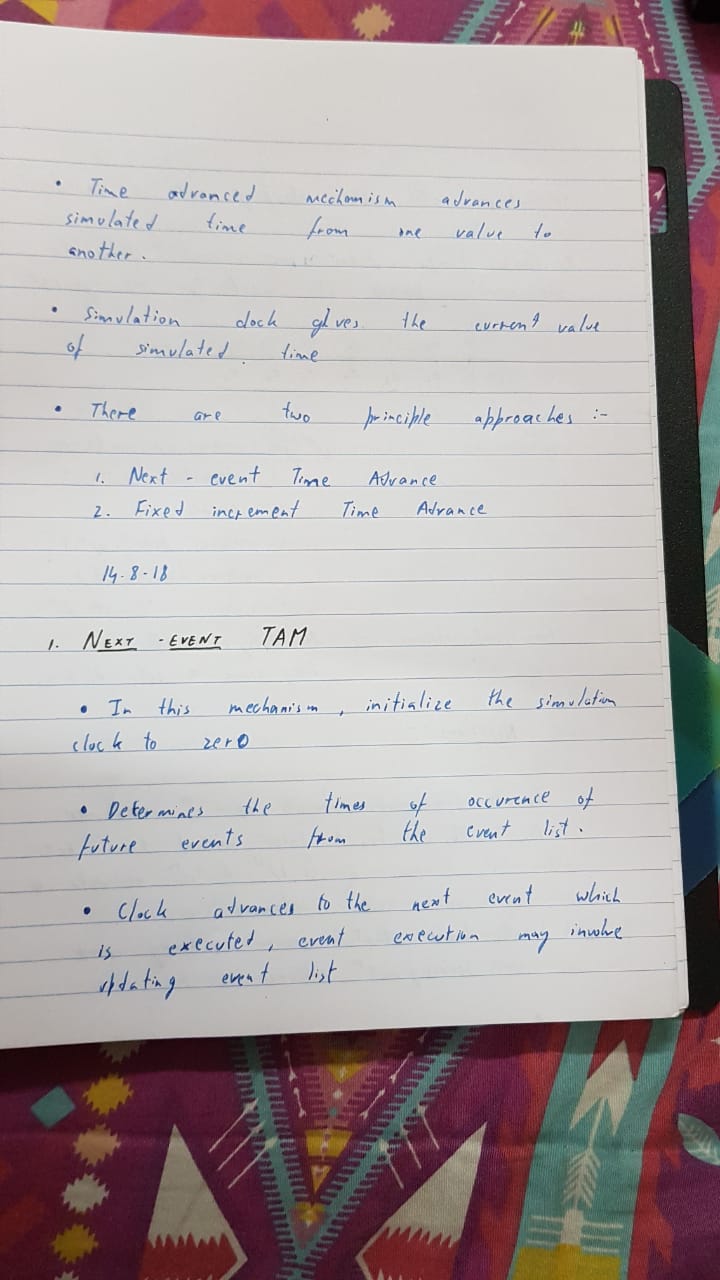 • Time advanced mechanism advances
simulated time from one value to
another.
• Simulation clock gives the current value
of simulated time
• There are two principle approaches :-
1. Next - event Time Advance
2. Fixed increment Time Advance
14-8-18
1. NEXT - EVENT TAM
• In this mechanism, initialize the simulation
clock to zero
• Determines the times of occurence of
future events from the event list.
• Clock advances to the next event which
is executed, event execution may involve
updating event list